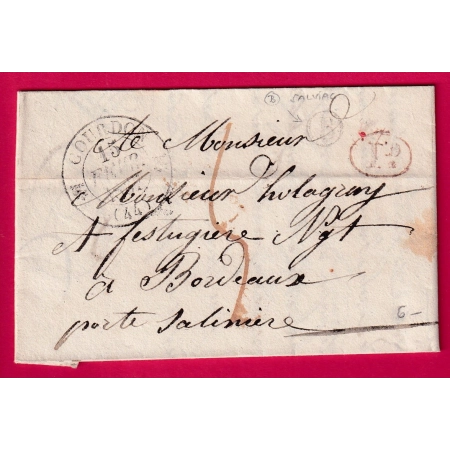 (B) SALVIAC
GOURDON
15
FEVR.
(44)
te Monsieur
Monsieur holagray
A festugiere Ngt
à Bordeaux
porte Saliniere
6-